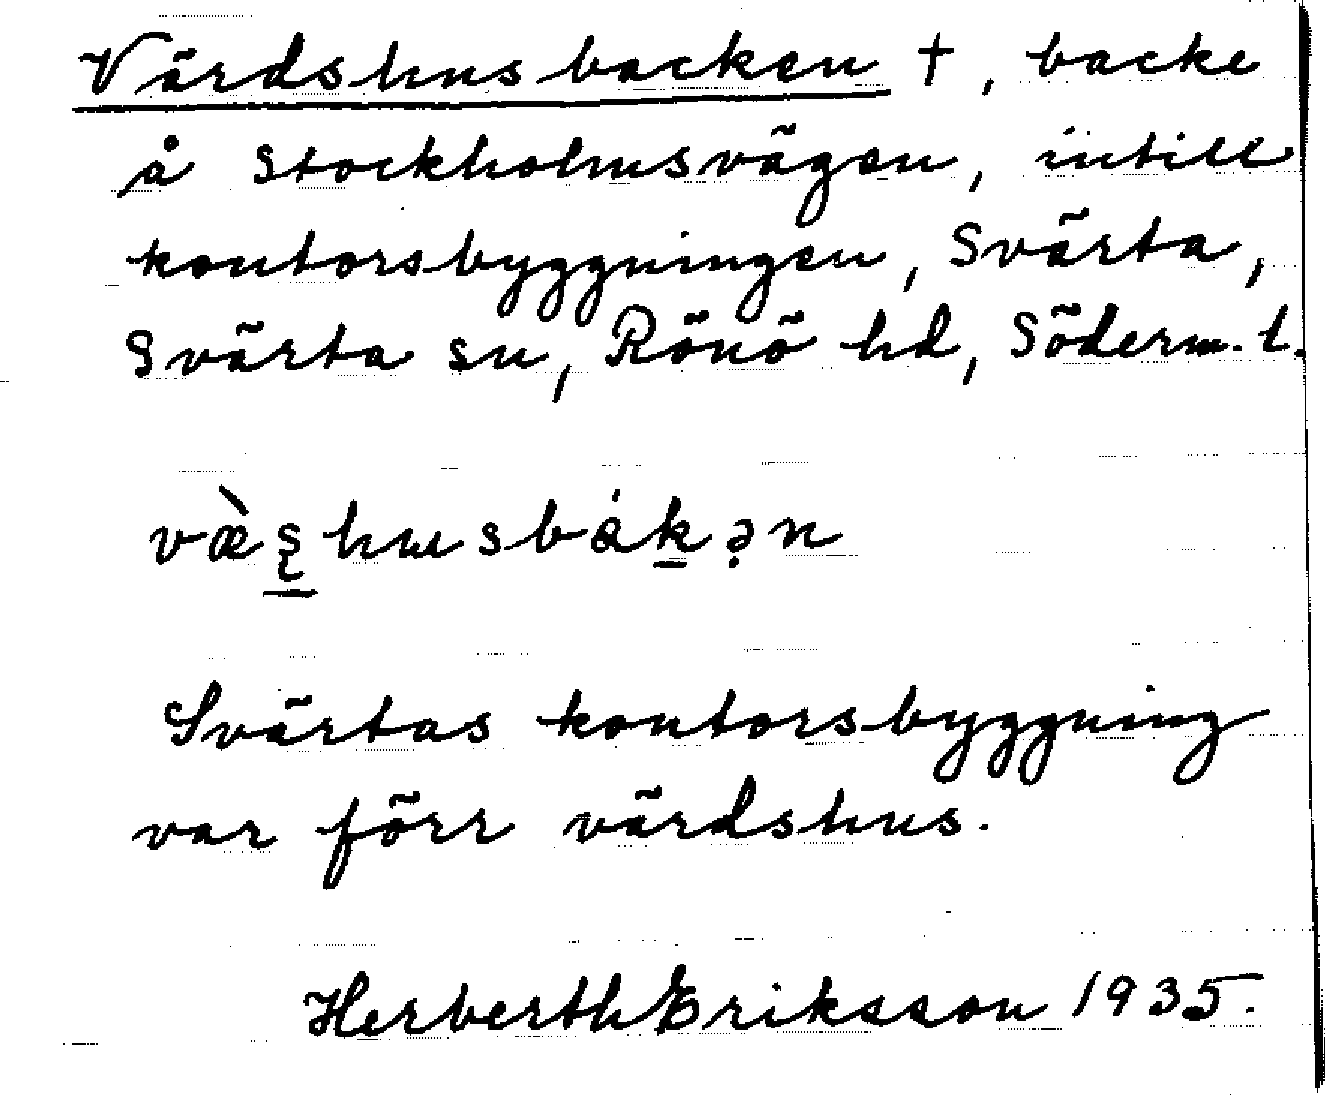 Värdshusbacken †, backe
å Stockholmsvägen, intill
kontorsbyggningen, Svärta,
Svärta sn, Rönö hd, Söderm. l.
væ̀ʂhusbákən
Svärtas kontorsbyggning
var förr värdshus.
Herberth Eriksson 1935.